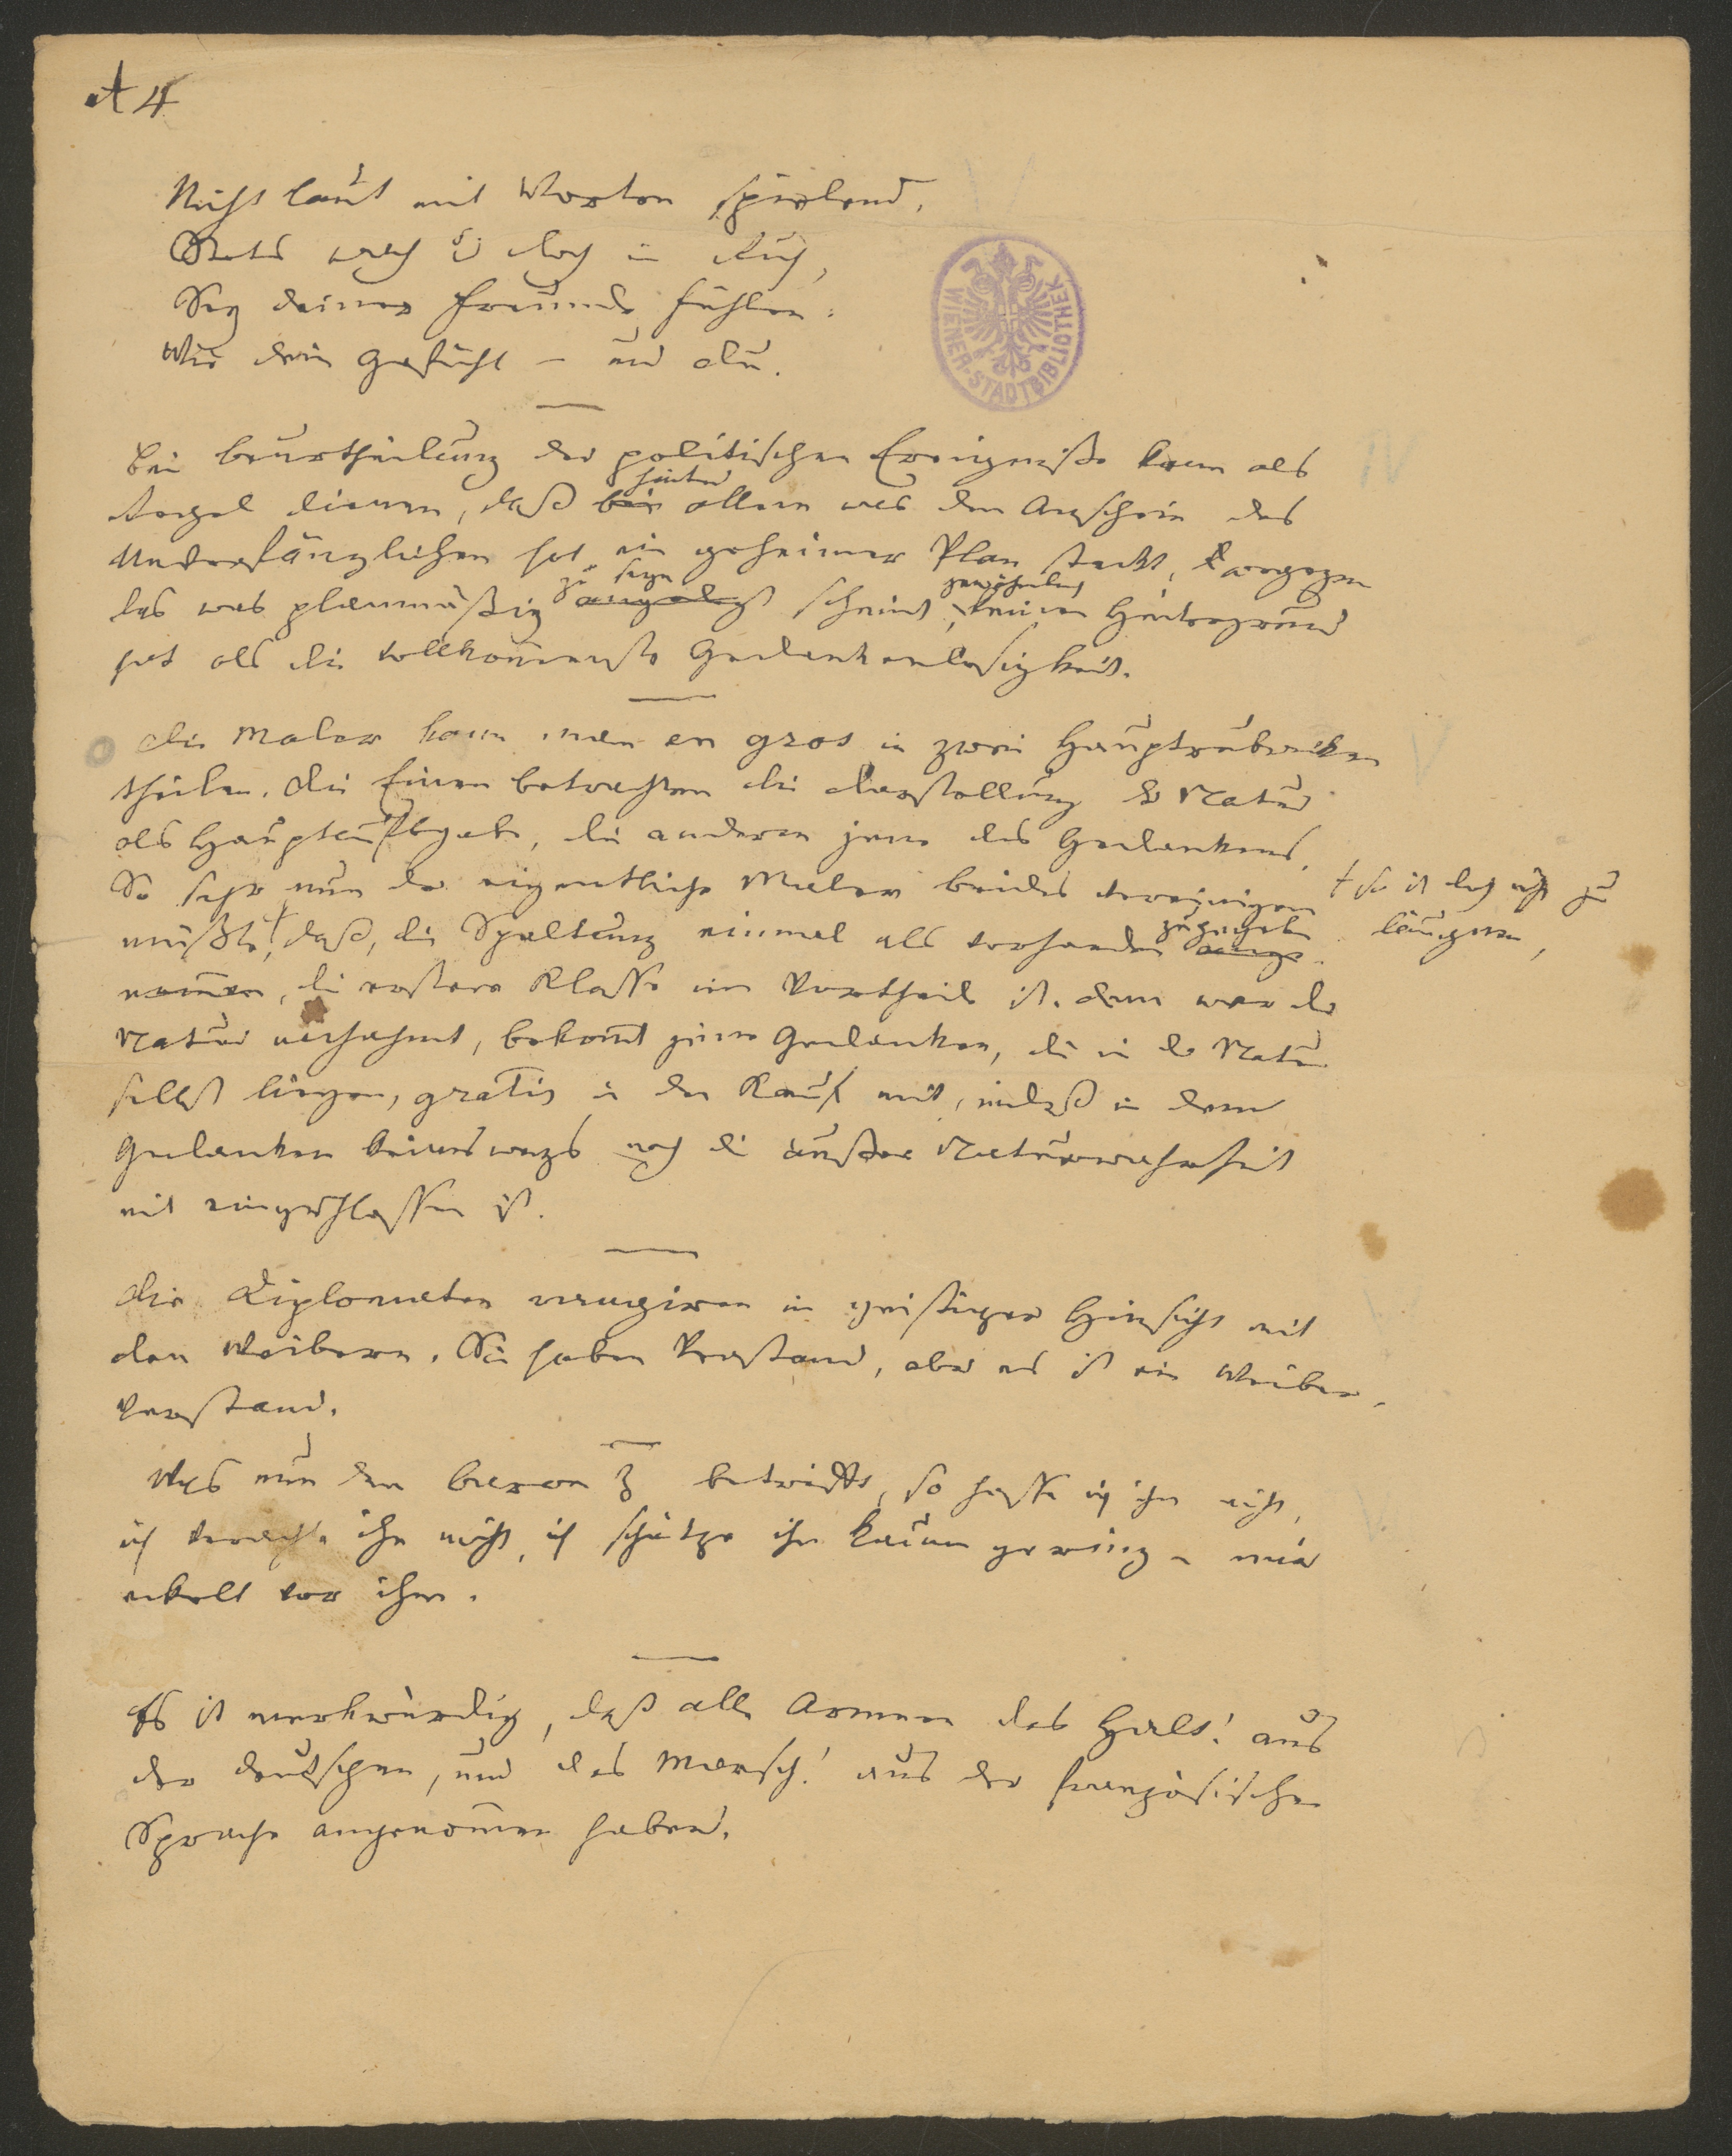 A 4
Nicht laut mit Worten spielend,
Stets wach u doch in Ruh,
Sey deiner Freunde Fühlen:
Wie dein Gesicht – und du.
WIENER-STADTBIBLIOTHEK
Bei Beurtheilung der politischen Ereignisse kann als
hinter
Regel dienen, daß bei allem was den Anschein des
Unverfänglichen hat ein geheimer Plan steckt, dagegen
zu seyn gewöhnlich
das was planmäßig angelegt scheint, keinen Hintergrund
hat als die vollkommenste Gedankenlosigkeit.
Die Maler kann man en gros in zwei Hauptrubriken
theilen. Die Einen betrachten die Darstellung der Natur
als Hauptaufgabe, die anderen jene des Gedankens.
So sehr nun der eigentliche Maler beides vereinigen
† so ist doch nicht zu
müßte,† daß, die Spaltung einmal als vorhanden zugegeben ange-
läugnen,
nommen, die erstere Klasse im Vortheil ist. Denn wer die
Natur nachahmt, bekommt jene Gedanken, die in der Natur
selbst liegen, gratis in den Kauf mit, indeß in dem
Gedanken keineswegs noch die äußere Naturwahrheit
mit eingeschlossen ist.
Die Diplomaten rangiren in geistiger Hinsicht mit
den Weibern. Sie haben Verstand, aber es ist ein Weiber-
verstand.
Was nun den Baron Z betrifft, so hasse ich ihn nicht,
ich verachte ihn nicht, ich schätze ihn kaum gering – mir
ekelt vor ihm.
Es ist merkwürdig, daß alle Armeen das Halt! aus
der deutschen, und das Marsch! aus der französischen
Sprache angenommen haben.